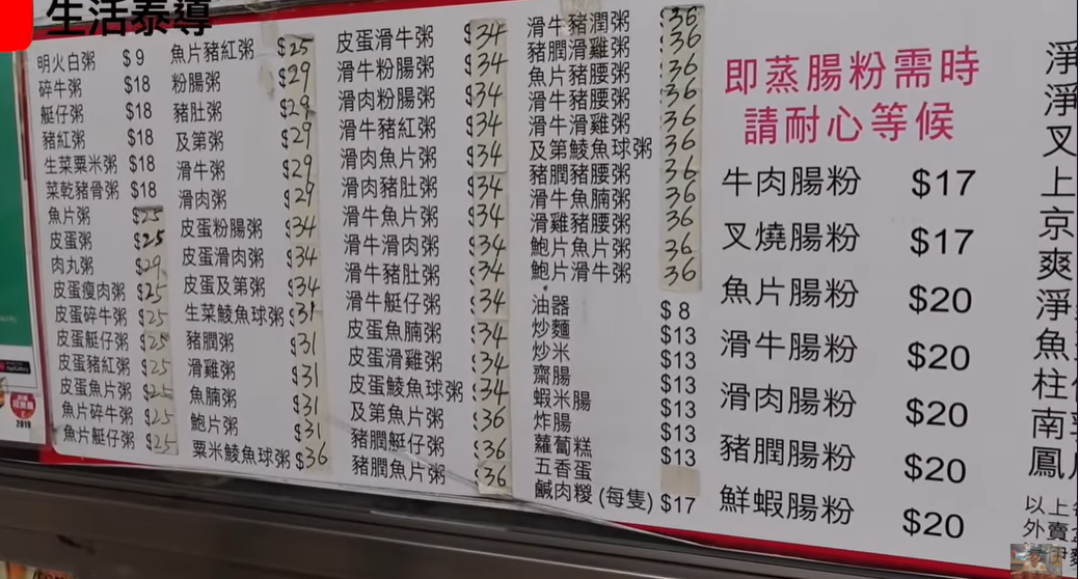 生活泰導
明火白粥 $9
碎牛粥 $18
艇仔粥 $18
豬紅粥 $18
生菜粟米粥 $18
菜乾豬骨粥 $18
魚片粥 $25
皮蛋粥 $25
肉丸粥 $29
皮蛋瘦肉粥 $25
皮蛋碎牛粥 $25
皮蛋艇仔粥 $25
皮蛋豬紅粥 $25
皮蛋魚片粥 $25
魚片碎牛粥 $25
魚片艇仔粥 $25
魚片豬紅粥 $25
粉腸粥 $29
豬肚粥 $29
及第粥 $29
滑牛粥 $29
滑肉粥 $29
皮蛋粉腸粥 $34
皮蛋滑肉粥 $34
皮蛋及第粥 $34
生菜鯪魚球粥 $31
豬膶粥 $31
滑雞粥 $31
魚腩粥 $31
鮑片粥 $31
粟米鯪魚球粥 $36
皮蛋滑牛粥 $34
滑牛粉腸粥 $34
滑肉粉腸粥 $34
滑牛豬紅粥 $34
滑肉魚片粥 $34
滑肉豬肚粥 $34
滑牛魚片粥 $34
滑牛滑肉粥 $34
滑牛豬肚粥 $34
滑牛艇仔粥 $34
皮蛋魚腩粥 $34
皮蛋滑雞粥 $34
皮蛋鯪魚球粥 $34
及第魚片粥 $36
豬膶艇仔粥 $36
豬膶魚片粥 $36
滑牛豬潤粥 $36
豬膶滑雞粥 36
魚片豬腰粥 36
滑牛豬腰粥 36
滑牛滑雞粥 36
及第鯪魚球粥 36
豬膶豬腰粥 36
滑牛魚腩粥 36
滑雞豬腰粥 36
鮑片魚片粥 36
鮑片滑牛粥 36
油器 $8
炒麵 $13
炒米 $13
齋腸 $13
蝦米腸 $13
炸腸 $13
蘿蔔糕 $13
五香蛋
鹹肉糉 (每隻) $17
即蒸腸粉需時
請耐心等候
牛肉腸粉 $17
叉燒腸粉 $17
魚片腸粉 $20
滑牛腸粉 $20
滑肉腸粉 $20
豬膶腸粉 $20
鮮蝦腸粉 $20
淨
淨
叉
上
京
爽
淨
魚
柱
南
鳳
以上
外賣
2019